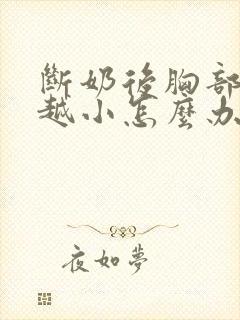 斷奶後胸部
越小怎麼办
夜如夢